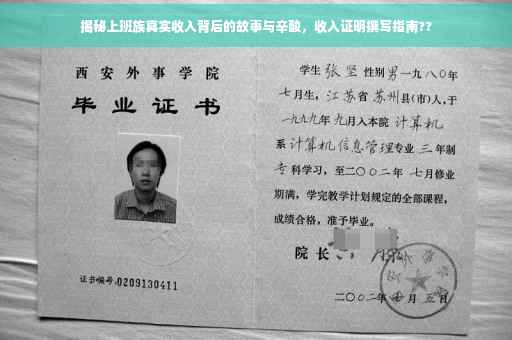 揭秘上班族真实收入背后的故事与辛酸，收入证明撰写指南??
西安外事学院
毕业证书
证书编号:0209130411
学生 张坚 性别 男 一九八〇年
七月生，江苏省 苏州县(市)人,于
一九九九年 九月入本院 计算机
系 计算机信息管理专业 三 年制
专 科学习，至二〇〇二年 七月修业
期满，学完教学计划规定的全部课程，
成绩合格，准予毕业。
院长
二〇〇二年 七月 五日